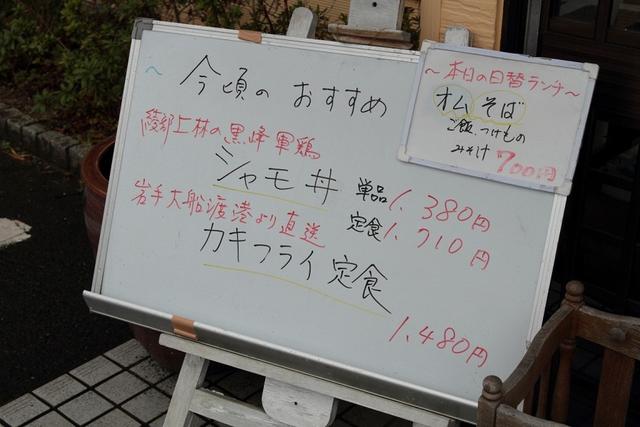 今頃のおすすめ
綾部上林の黒峰軍鶏
シャモ丼 単品 1,380円
定食 1,710円
岩手大船渡港より直送
カキフライ定食
1,480円
～本日の日替ランチ～
オムそば
ご飯 つけもの
みそ汁 700円